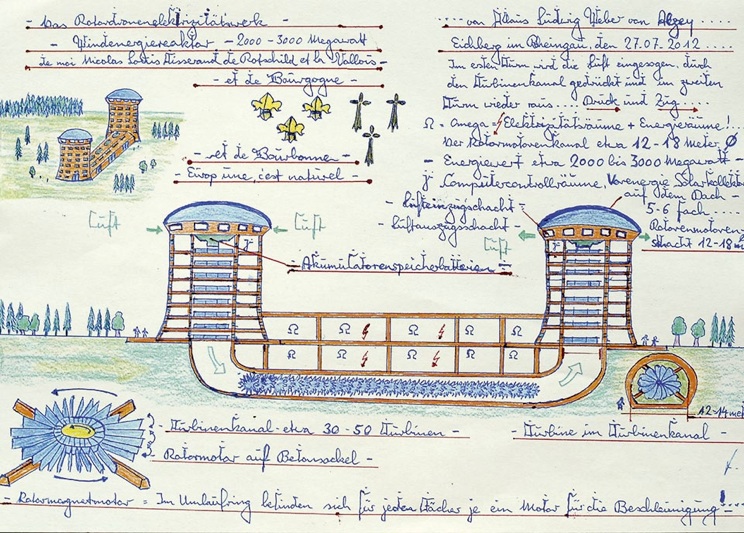 - Das Rotordromenelektrizitätswerk -
- Windenergiereaktor - 2000 - 3000 Megawatt
de moi Nicolas Louis Disserand de Rotschild et la Vallois -
- et de Bourgogne -
- et de Bourbonne -
- Europ une, c'est naturel -
.... von Klaus Ludwig Weber von Alzey ....
Eichberg im Rheingau, den 27.07.2012 ....
Im ersten Turm wird die Luft eingesogen, durch
den Turbinenkanal gedrückt und im zweiten
Turm wieder raus.... Druck und Zug ....
Ω = Omega = Elektrizitätsräume + Energieräume!
Der Rotormotorenkanal etwa 12-18 Meter Ø
- Energiewert etwa 2000 bis 3000 Megawatt -
Computercontrollräume, Vorenergie Solarkollekt
auf dem Dach -
5-6 fach ....
- Lufteinzugschacht -
- Luftauszugschacht -
Rotorenmotoren-
schacht 12-18 m
Luft
Luft
Luft
- Akumulatorenspeicherbatterien -
Ω Ω Ω Ω Ω
Ω Ω Ω Ω Ω
12-14 met
- Turbinenkanal etwa 30-50 Turbinen -
- Turbine im Turbinenkanal -
Rotormotor auf Betonsockel -
- Rotormagnetmotor = Im Umlaufring befinden sich für jeden Fächer je ein Motor für die Beschleinigung! -